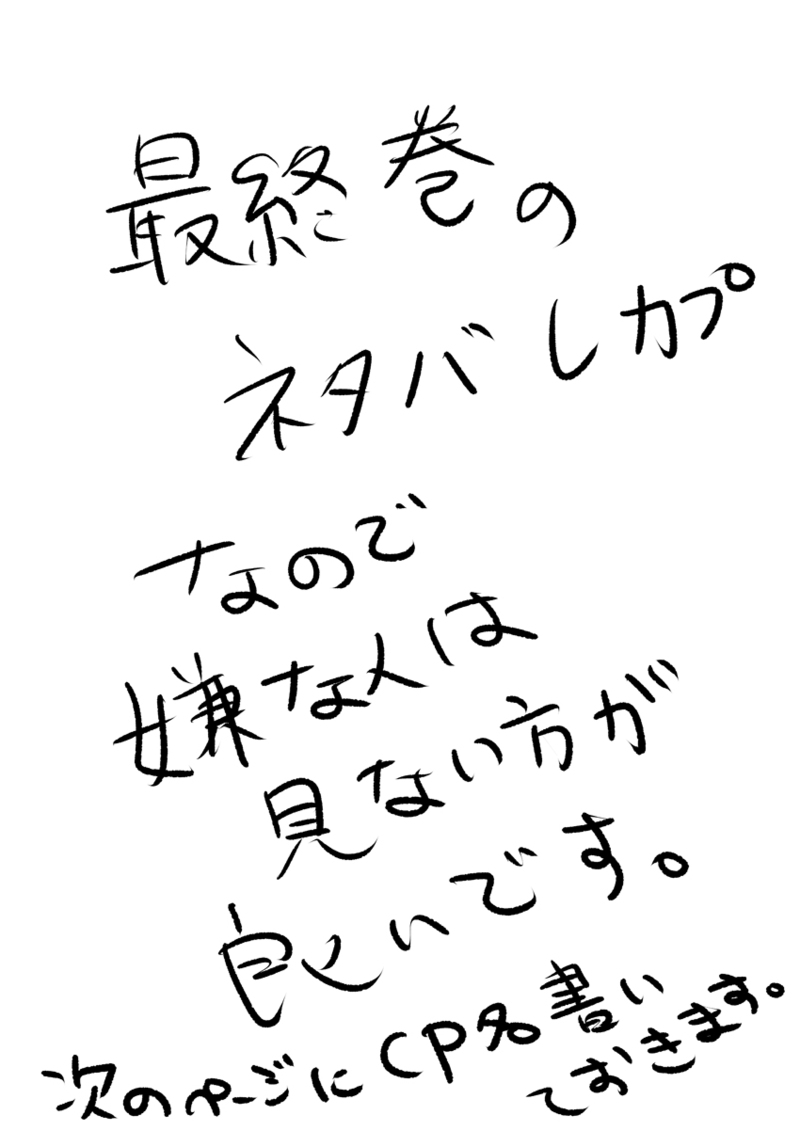 最終巻の
ネタバレカプ
なので
嫌な人は
見ない方が
良いです。
次のページにCP名書い
ておきます。